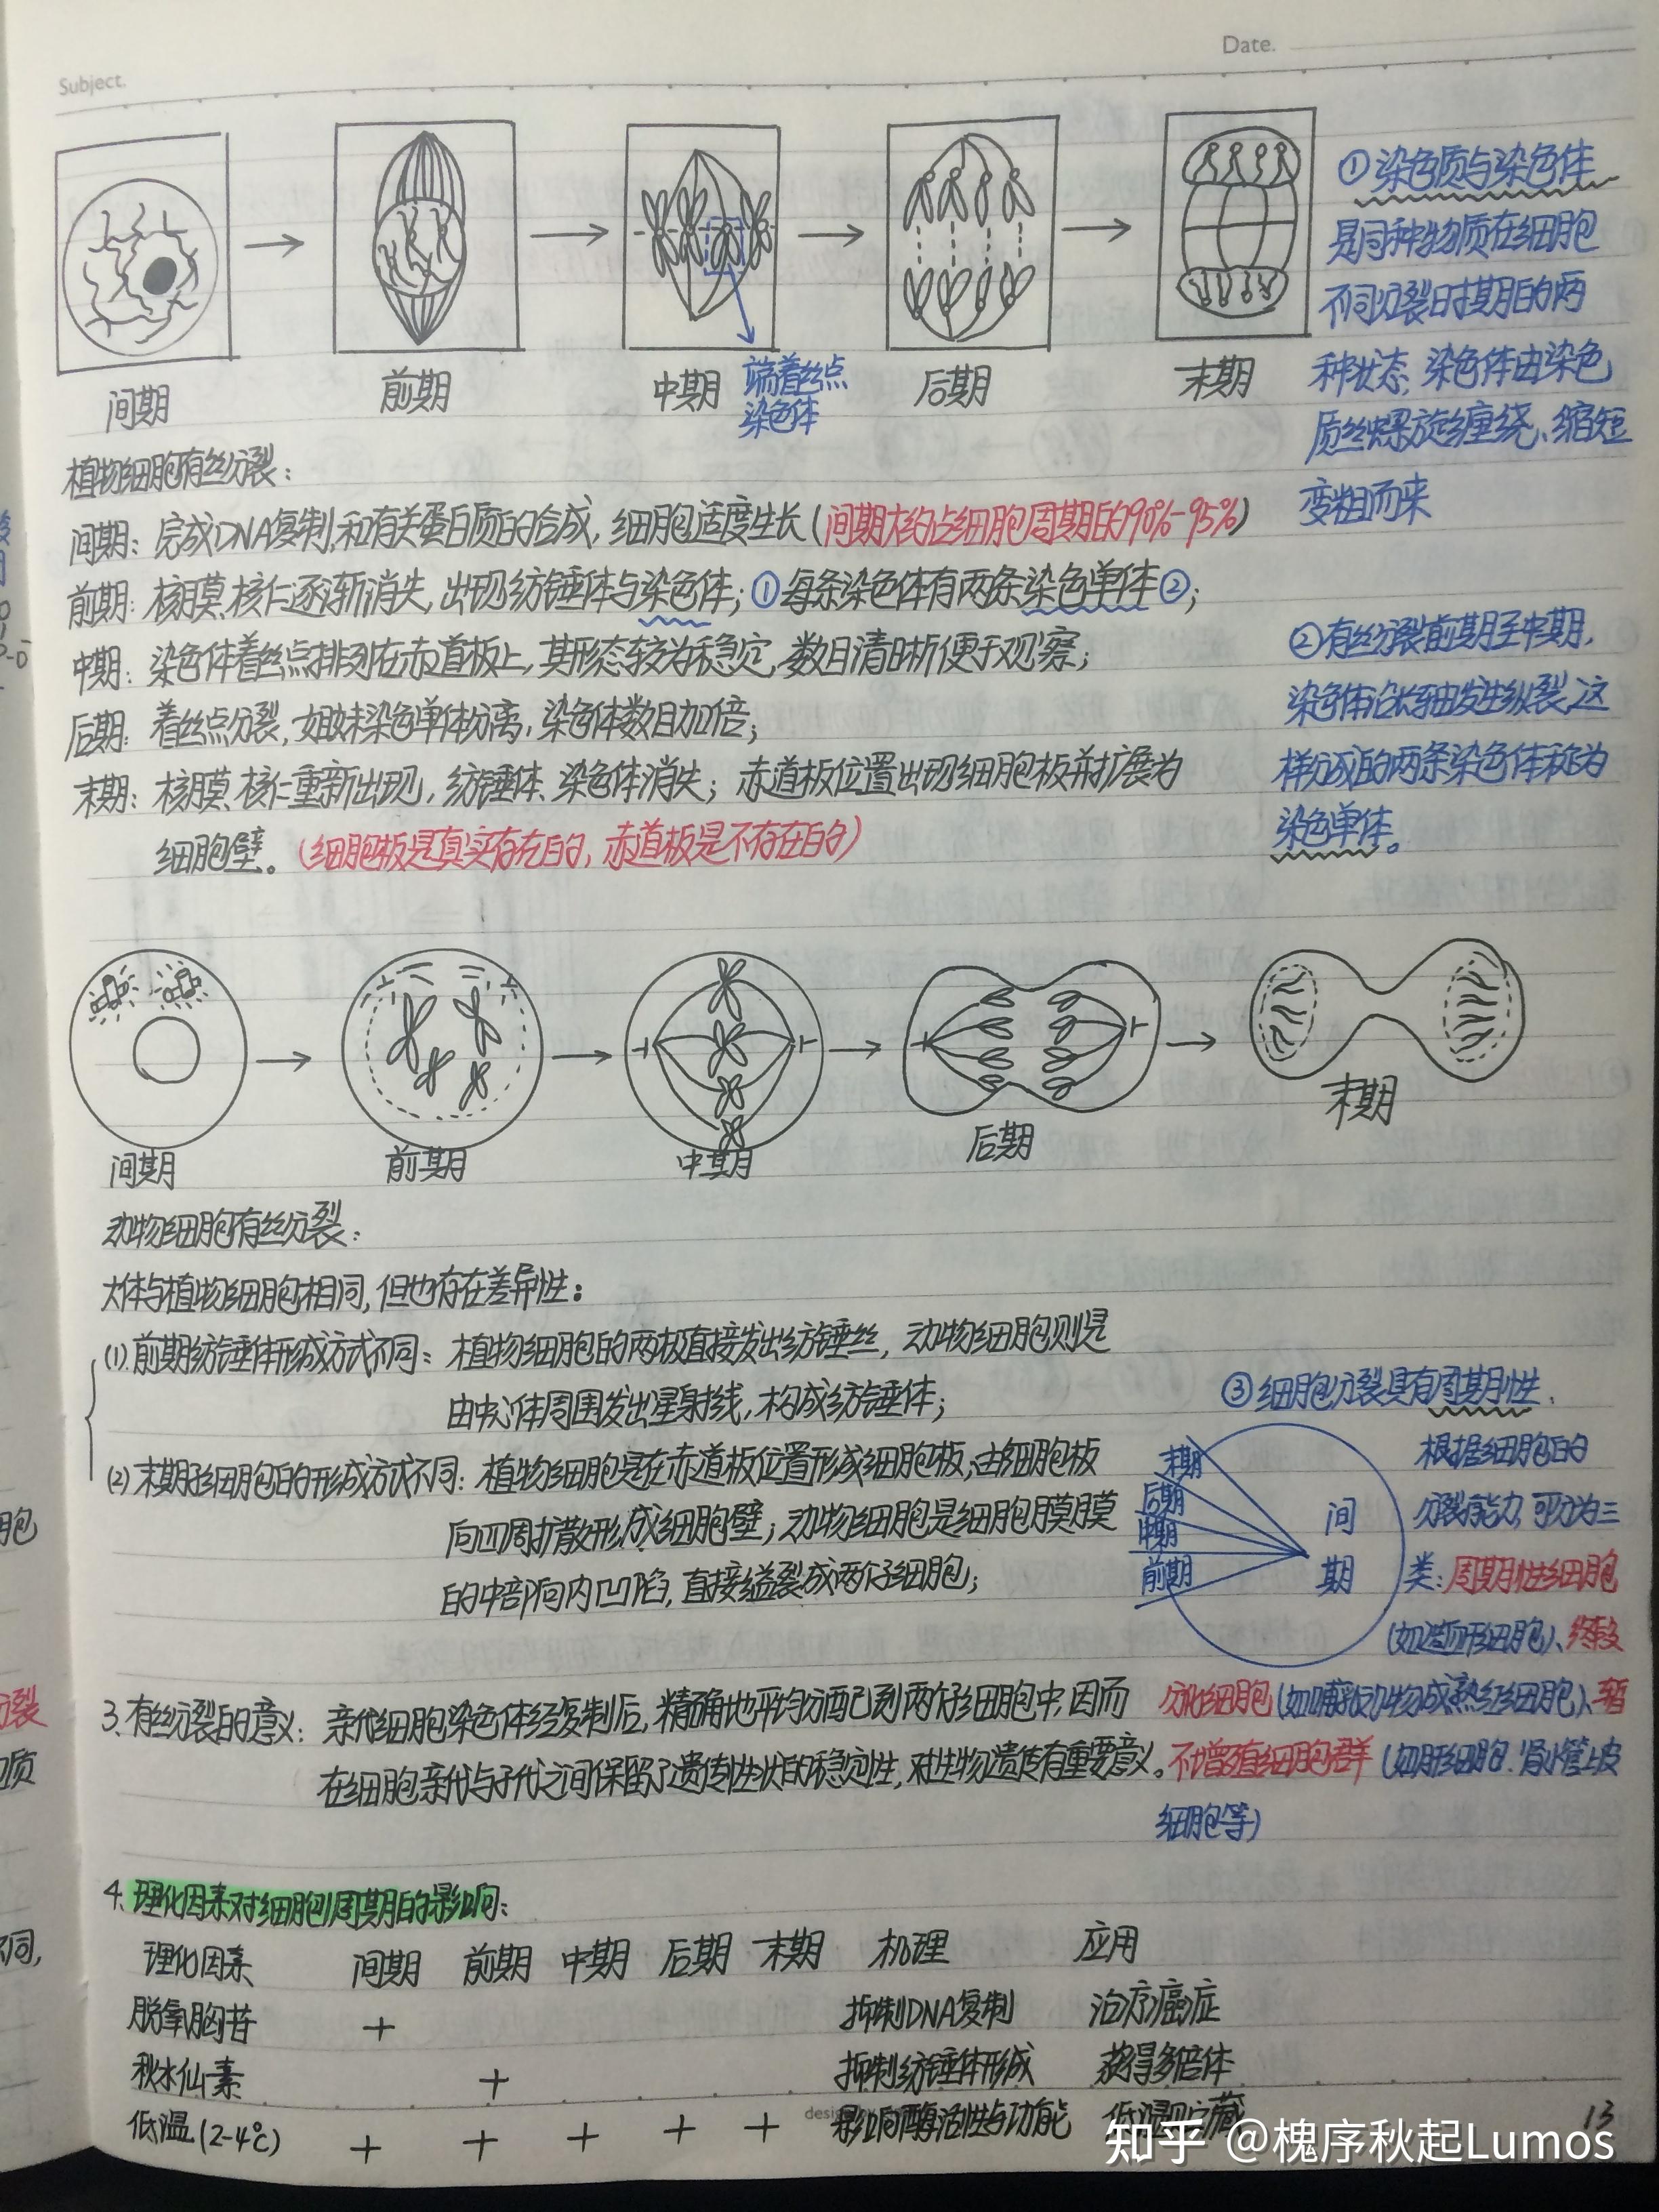 Subject.
Date.
间期
前期
中期
端着丝点
染色体
后期
末期
①染色质与染色体
是同种物质在细胞
不同分裂时期的两
种状态,染色体由染色
质丝螺旋缠绕、缩短
变粗而来
植物细胞有丝分裂:
间期:完成DNA复制,和有关蛋白质的合成,细胞适度生长(间期大约占细胞周期的90%-95%)
前期:核膜、核仁逐渐消失,出现纺锤体与染色体;①每条染色体有两条染色单体②;
中期:染色体着丝点排列在赤道板上,其形态较为稳定,数目清晰便于观察;
后期:着丝点分裂,姐妹染色单体分离,染色体数目加倍;
末期:核膜、核仁重新出现,纺锤体、染色体消失;赤道板位置出现细胞板并扩展为
细胞壁。(细胞板是真实存在的,赤道板是不存在的)
②有丝分裂前期至中期,
染色体沿长轴发生纵裂,这
样分成的两条染色体称为
染色单体。
间期
前期
中期
后期
末期
动物细胞有丝分裂:
大体与植物细胞相同,但也存在差异性:
(1).前期纺锤体形成方式不同:植物细胞的两极直接发出纺锤丝,动物细胞则是
由中心体周围发出星射线,构成纺锤体;
(2)末期子细胞的形成方式不同:植物细胞是在赤道板位置形成细胞板,由细胞板
向四周扩散形成细胞壁;动物细胞是细胞膜膜
的中部向内凹陷,直接缢裂成两个子细胞;
③细胞分裂具有周期性.
末期
后期
中期
前期
间
期
根据细胞的
分裂能力,可分为三
类:周期性细胞
(如造血干细胞)、终末
分化细胞(如哺乳动物成熟红细胞)、暂
不增殖细胞群(如肝细胞.肾小管上皮
细胞等)
3.有丝分裂的意义:亲代细胞染色体经复制后,精确地平均分配到两个子细胞中,因而
在细胞亲代与子代之间保留了遗传性状的稳定性,对生物遗传有重要意义。
4.理化因素对细胞周期的影响:
理化因素 间期 前期 中期 后期 末期 机理 应用
脱氧胸苷 + 抑制DNA复制 治疗癌症
秋水仙素 + 抑制纺锤体形成 获得多倍体
低温(2-4℃) + + + + + 影响酶活性与功能 低温贮藏
13
知乎 @槐序秋起Lumos